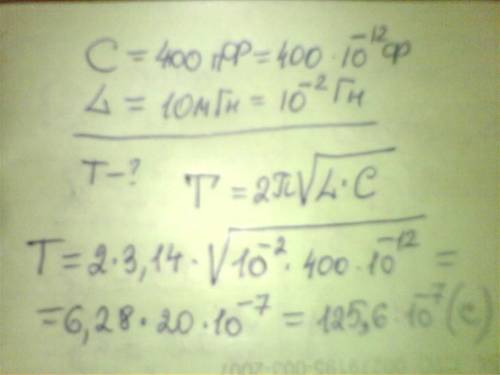 C = 400 пФ = 400 · 10⁻¹² Ф
L = 10 мГн = 10⁻² Гн
T – ?
T = 2π√L · C
T = 2 · 3,14 · √10⁻² · 400 · 10⁻¹² =
= 6,28 · 20 · 10⁻⁷ = 125,6 · 10⁻⁷ (с)